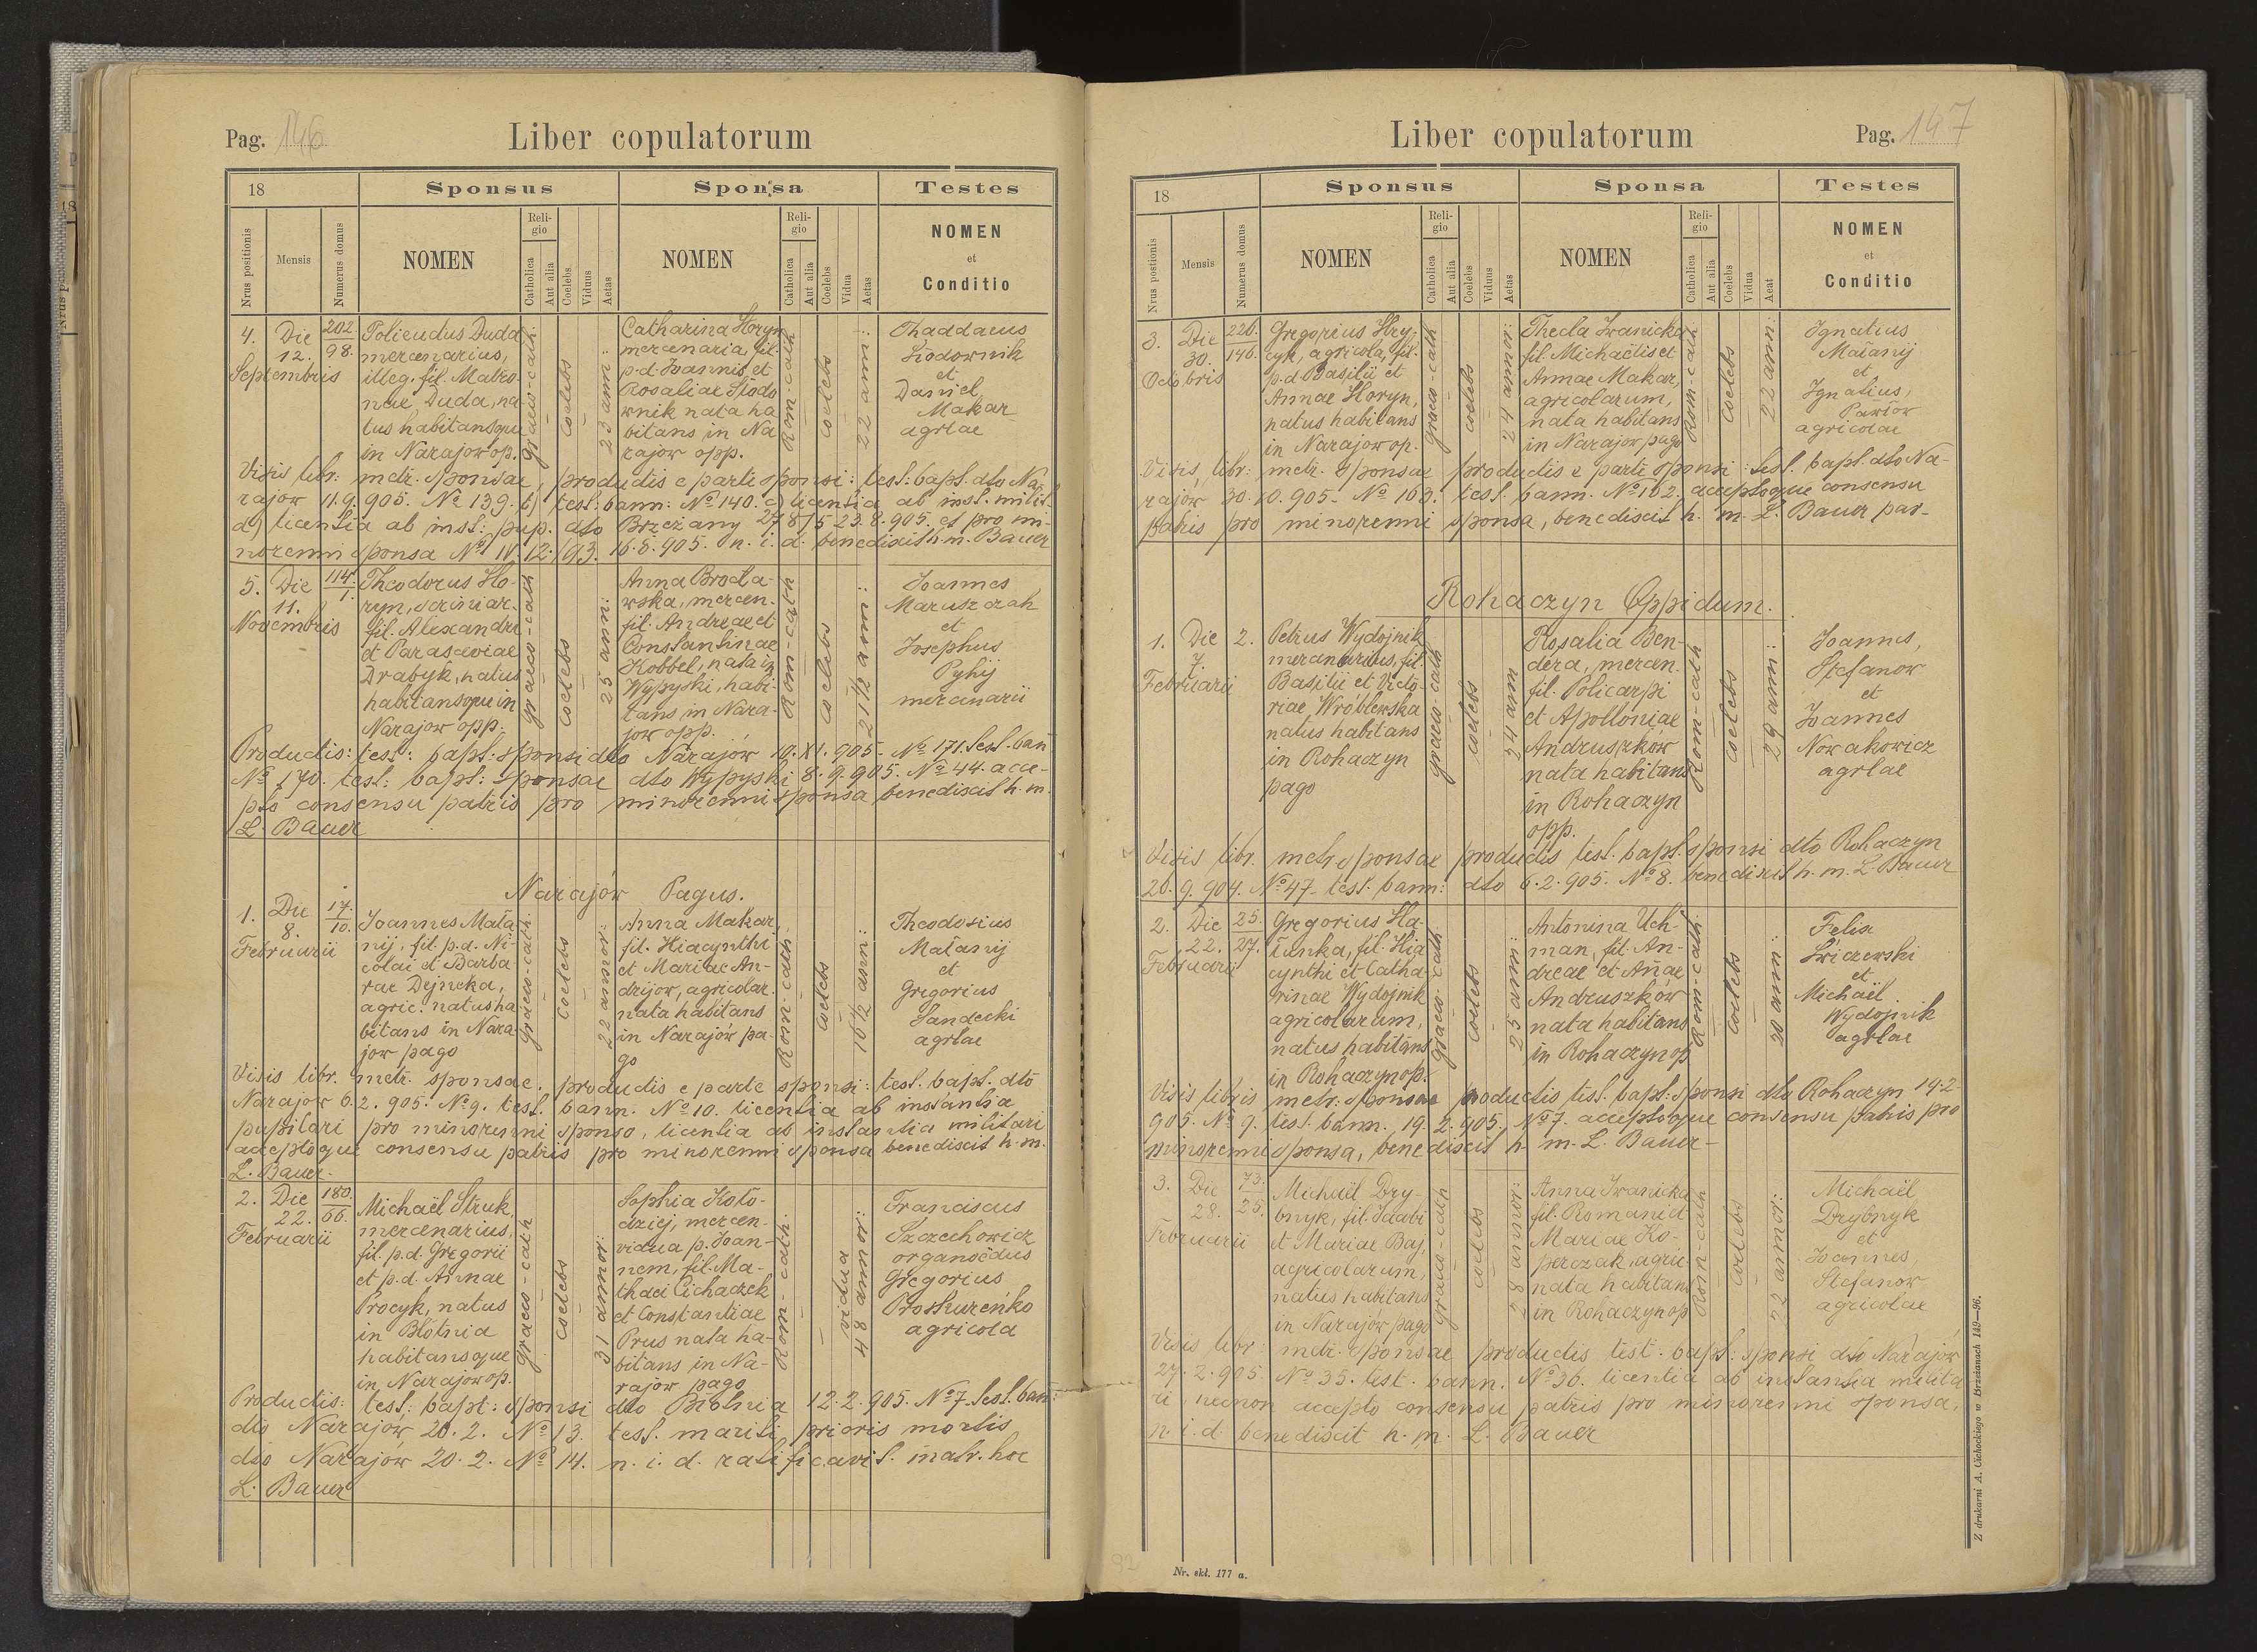 Pag. 146
Liber copulatorum
18
Sponsus
Sponsa
Testes
Nrus positionis
Mensis
Numerus domus
NOMEN
Religio
Catholica
Aut alia
Coelebs
Viduus
Aetas
NOMEN
Religio
Catholica
Aut alia
Coelebs
Vidua
Aetas
NOMEN
et
Conditio
4.
Die
12.
Septembris
202.
98.
Policudus Duda
mercenarius,
illeg. fil. Matro-
nae Duda, na-
tus habitansque
in Narajow op.
graeco-cath.
coelebs
23 ann:
Catharina Horyn
mercenaria, fil.
p.d. Joannis et
Rosaliae Słodo
wnik nata ha
bitans in Na
rajow opp.
Rom-cath
coelebs
22 anni:
Thaddaeus
Słodownik
et
Daniel,
Makar
agrlae
Visis libr: metr. sponsae, productis e parte sponsi: test: bapt. dto Na-
rajow 11.9.905. № 139. b) test: bann: № 140. c) licentia ab inst. milit.
d) licentia ab inst: pup. dto Brzeżany 27/8/5 23.8.905. et pro mi-
norenni sponsa № IV. 12./93. 16.8.905. n. i. d. benedixit h. m. Bauer
5.
Die
11.
Novembris
114.
1.
Theodorus Ho-
ryn, scriniar.
fil. Alexandri
et Parasceviae
Drabyk, natus
habitansque in
Narajow opp.
graeco-cath
coelebs
25 ann:
Anna Brocła-
wska, mercen.
fil. Andreae et
Constantinae
Kobbel, nata in
Wypyski, habi-
tans in Nara-
jow opp.
Rom-cath
coelebs
21 1/2 anni:
Joannes
Maruszczak
et
Josephus
Pyhij
mercenarii
Productis: test: bapt: sponsi dto Narajów 10.XI.905. № 171. test. ban
№ 170. test: bapt: sponsae dto Wypyski 8.9.905. № 44. acce-
pto consensu patris pro minorenni sponsa benedixit h. m.
L. Bauer
Narajów Pagus.
1.
Die
8.
Februarii
17.
10.
Joannes Mała
nij, fil. p.d. Ni-
colai et Barba-
rae Dejneka,
agric. natus ha
bitans in Nara-
jow pago
graeco-cath.
coelebs
22 annor:
Anna Makar,
fil. Hiacynthi
et Mariae An-
drijow, agricolar.
nata habitans
in Narajów pa-
go
Rom-cath.
coelebs
16 1/2 ann:
Theodosius
Małanij
et
Gregorius
Sandecki
agrlae
Visis libr. metr. sponsae. productis e parte sponsi: test. bapt. dto
Narajow 6.2.905. № 9. test. bann. № 10. licentia ab instantia
pupilari pro minorenni sponso, licentia ab instantia militari
acceptoque consensu patris pro minorenni sponsa benedixit h. m.
L. Bauer.
2.
Die
22.
Februarii
180.
66.
Michaël Struk,
mercenarius,
fil. p.d. Gregorii
et p.d. Annae
Procyk, natus
in Błotnia
habitansque
in Narajow op.
graeco-cath
coelebs
31 annor:
Sophia Koło-
dziej, mercen-
vidua p. Joan-
nem, fil. Ma-
thaei Cichaczek
et Constantiae
Prus nata ha-
bitans in Na-
rajow pago
Rom-cath.
vidua
48 annor:
Franciscus
Szczechowicz
organoedus
Gregorius
Proskureńko
agricola
Productis: test: bapt: sponsi dto Błotnia 12.2.905. № 7. test. ban:
dto Narajów 20.2. № 13. test. mariti prioris mortis
dto Narajów 20.2. № 14. n. i. d. ratificavit. matr. hoc
L. Bauer
Liber copulatorum
Pag. 147
18
Sponsus
Sponsa
Testes
Nrus postionis
Mensis
Numerus domus
NOMEN
Religio
Catholica
Aut alia
Coelebs
Viduus
Aetas
NOMEN
Religio
Catholica
Aut alia
Coelebs
Vidua
Aeat
NOMEN
et
Conditio
3.
Die
30.
Octobris
226.
146.
Gregorius Hry-
cyk, agricola, fil.
p.d. Basilii et
Annae Horyn,
natus habitans
in Narajow op.
graeco-cath
coelebs
24 annor:
Thecla Iwanicka
fil. Michaëlis et
Annae Makar,
agricolarum,
nata habitans
in Narajow pago
Rom-cath
coelebs
22 ann:
Ignatius
Małanij
et
Ignatius,
Pawlow
agricolae
Visis, libr: metr. sponsae productis e parte sponsi: test. bapt. dto Na-
rajów 30.10.905. № 163. test. bann. № 162. acceptoque consensu
patris pro minorenni sponsa, benedixit h. m. L. Bauer par-
Rohaczyn Oppidum.
1.
Die
7.
Februarii
2.
Petrus Wydojnik
mercenarius, fil.
Basilii et Victo-
riae Wróblewska
natus habitans
in Rohaczyn
pago
graeco-cath
coelebs
24 ann
Rosalia Ben-
dera, mercen.
fil. Policarpi
et Apolloniae
Andruszków
nata habitans
in Rohaczyn
opp.
Rom-cath
coelebs
29 ann:
Joannes,
Stefanow
et
Joannes
Nowakowicz
agrlae
Visis libr. metr sponsae productis test. bapt. sponsi dto Rohaczyn
20.9.904. № 47- test. bann: dto 6.2.905. № 8. benedixit h. m. L. Bauer
2.
Die
22.
Februarii
25.
27.
Gregorius Ha-
łunka, fil. Hia
cynthi et Catha-
rinae Wydojnik
agricolarum,
natus habitans
in Rohaczyn op.
graeco-cath
coelebs
25 ann:
Antonina Uch-
man, fil. An-
dreae et Annae
Andruszków
nata habitans
in Rohaczyn op
Rom-cath.
coelebs
20 ann:
Felix
Świczewski
et
Michaël
Wydojnik
agrlae
Visis libris metr: sponsae productis test. bapt: sponsi dto Rohaczyn 19.2-
905. № 9. test. bann. 19.2.905. № 7. acceptoque consensu patris pro
minorenni sponsa, benedixit h. m. L. Bauer-
3.
Die
28.
Februarii
173.
25.
Michaël Dry-
bnyk, fil. Jacobi
et Mariae Baj,
agricolarum,
natus habitans
in Narajów pago
graeco-cath
coelebs
28 annor:
Anna Iwanicka
fil. Romani et
Mariae Ko-
perczak, agric-
nata habitans
in Rohaczyn op
Rom-cath
coelebs
22 annor:
Michaël,
Drybnyk
et
Joannes,
Stefanow
agricolae
Visis libr: metr. sponsae productis test. bapt: sponsi dto Narajów
27.2.905. № 35. test. bann. № 36. licentia ab instansia milita
ri, necnon accepto consensu patris pro minorenni sponsa,
n. i. d. benedixit h. m. L. Bauer
92
Nr. skł. 177 a.
Z drukarni A. Cichockiego w Brzeżanach 149—96.